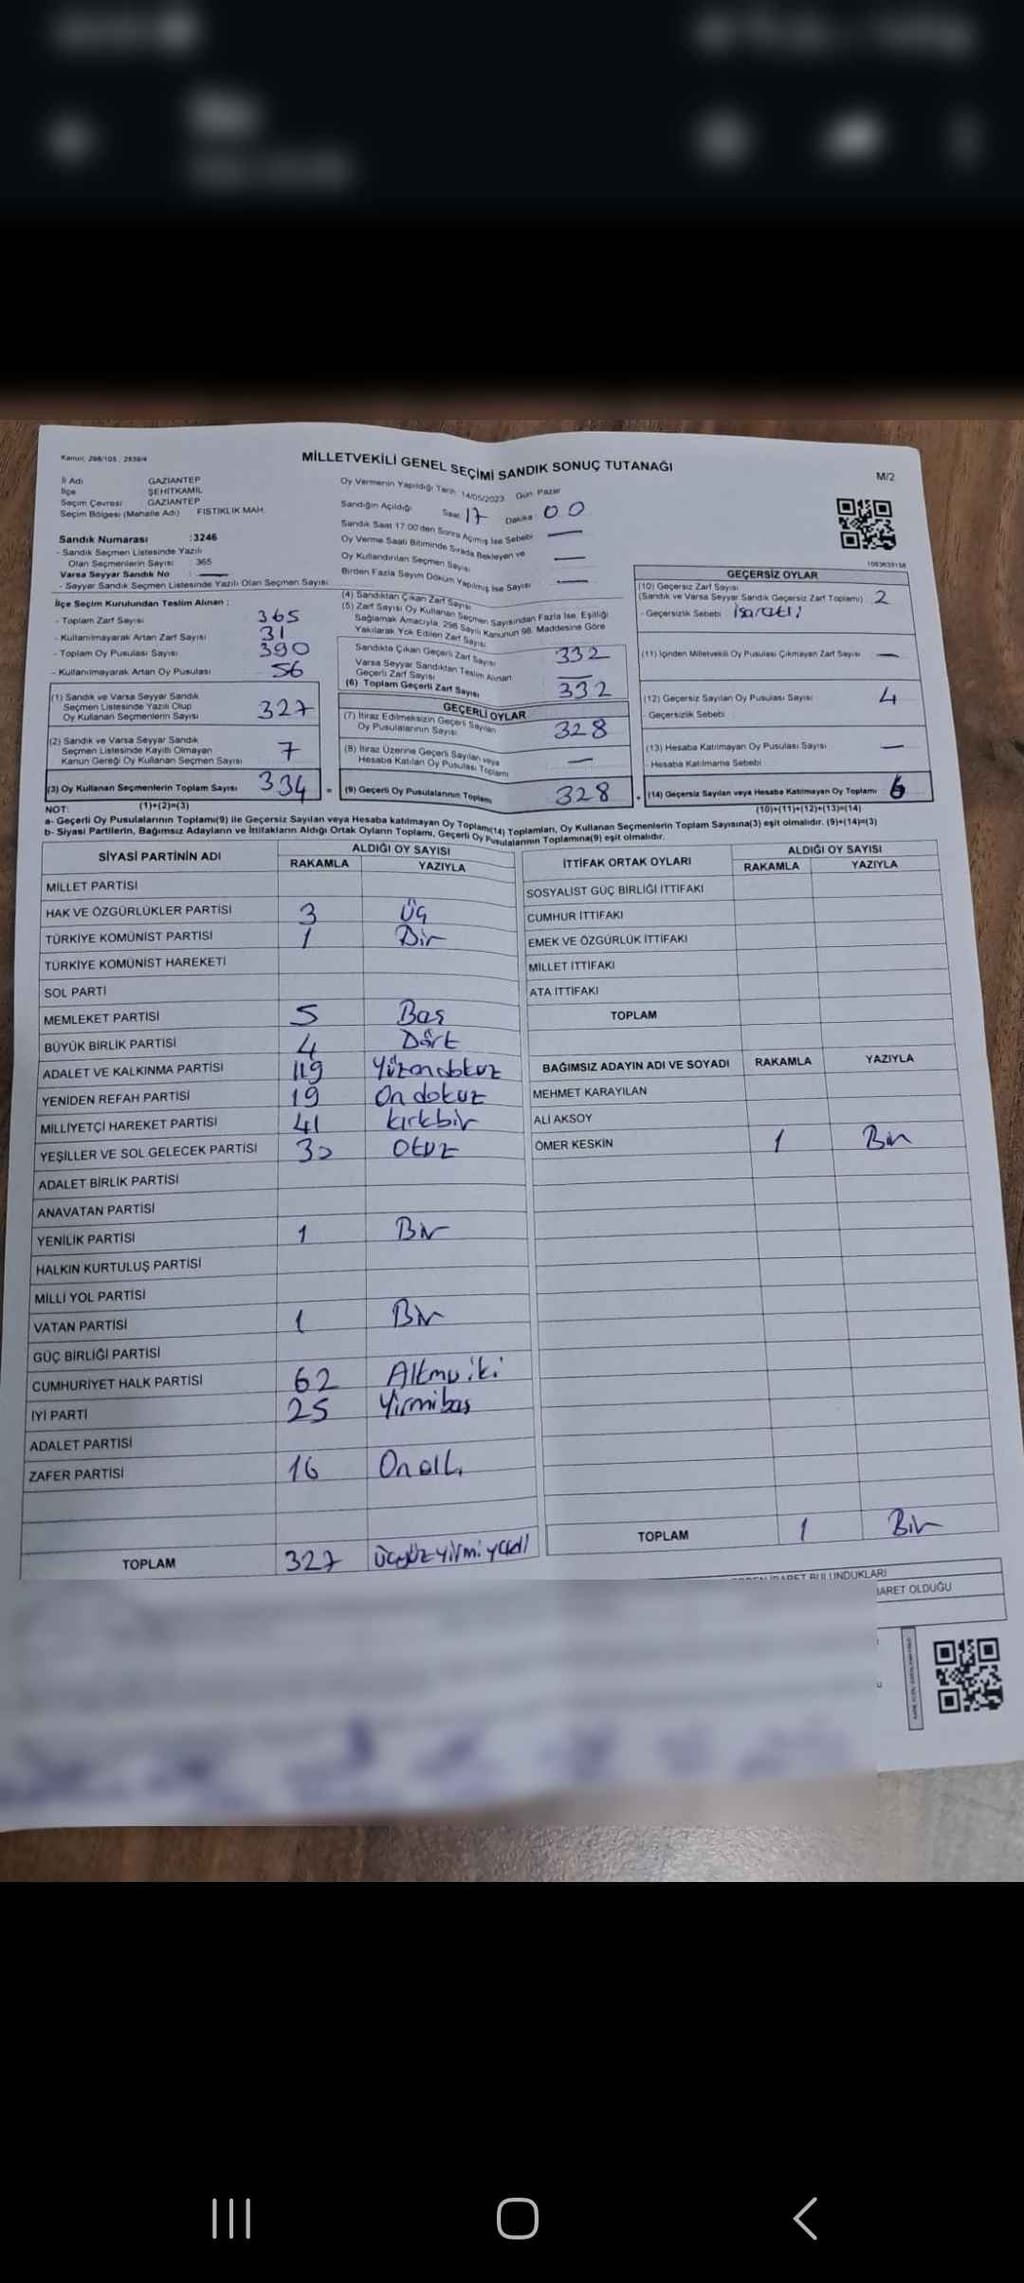 MİLLETVEKİLİ GENEL SEÇİMİ SANDIK SONUÇ TUTANAĞI
Kanun: 298/105, 2839/4
M/2
İl Adı GAZİANTEP
İlçe ŞEHİTKAMİL
Seçim Çevresi GAZİANTEP
Seçim Bölgesi (Mahalle Adı) FISTIKLIK MAH.
Sandık Numarası :3246
- Sandık Seçmen Listesinde Yazılı
Olan Seçmenlerin Sayısı : 365
Varsa Seyyar Sandık No : —
- Seyyar Sandık Seçmen Listesinde Yazılı Olan Seçmen Sayısı :
Oy Vermenin Yapıldığı Tarih: 14/05/2023 Gün: Pazar
Sandığın Açıldığı Saat 17 Dakika 00
Sandık Saat 17:00'den Sonra Açılmış İse Sebebi —
Oy Verme Saati Bitiminde Sırada Bekleyen ve
Oy Kullandırılan Seçmen Sayısı —
Birden Fazla Sayım Döküm Yapılmış İse Sayısı —
İlçe Seçim Kurulundan Teslim Alınan :
- Toplam Zarf Sayısı 365
- Kullanılmayarak Artan Zarf Sayısı 31
- Toplam Oy Pusulası Sayısı 390
- Kullanılmayarak Artan Oy Pusulası 56
(1) Sandık ve Varsa Seyyar Sandık
Seçmen Listesinde Yazılı Olup
Oy Kullanan Seçmenlerin Sayısı 327
(2) Sandık ve Varsa Seyyar Sandık
Seçmen Listesinde Kayıtlı Olmayan
Kanun Gereği Oy Kullanan Seçmen Sayısı 7
(3) Oy Kullanan Seçmenlerin Toplam Sayısı 334 =
(4) Sandıktan Çıkan Zarf Sayısı
(5) Zarf Sayısı Oy Kullanan Seçmen Sayısından Fazla İse, Eşitliği
Sağlamak Amacıyla, 298 Sayılı Kanunun 98. Maddesine Göre
Yakılarak Yok Edilen Zarf Sayısı
Sandıkta Çıkan Geçerli Zarf Sayısı 332
Varsa Seyyar Sandıktan Teslim Alınan
Geçerli Zarf Sayısı —
(6) Toplam Geçerli Zarf Sayısı 332
GEÇERLİ OYLAR
(7) İtiraz Edilmeksizin Geçerli Sayılan
Oy Pusulalarının Sayısı 328
(8) İtiraz Üzerine Geçerli Sayılan veya
Hesaba Katılan Oy Pusulası Toplamı —
(9) Geçerli Oy Pusulalarının Toplamı 328
GEÇERSİZ OYLAR
(10) Geçersiz Zarf Sayısı
(Sandık ve Varsa Seyyar Sandık Geçersiz Zarf Toplamı) 2
- Geçersizlik Sebebi işaretli
(11) İçinden Milletvekili Oy Pusulası Çıkmayan Zarf Sayısı —
(12) Geçersiz Sayılan Oy Pusulası Sayısı 4
- Geçersizlik Sebebi
(13) Hesaba Katılmayan Oy Pusulası Sayısı —
- Hesaba Katılmama Sebebi
(14) Geçersiz Sayılan veya Hesaba Katılmayan Oy Toplamı 6
NOT: (1)+(2)=(3)
(10)+(11)+(12)+(13)=(14)
a- Geçerli Oy Pusulalarının Toplamı(9) ile Geçersiz Sayılan veya Hesaba katılmayan Oy Toplam(14) Toplamları, Oy Kullanan Seçmenlerin Toplam Sayısına(3) eşit olmalıdır. (9)+(14)=(3)
b- Siyasi Partilerin, Bağımsız Adayların ve İttifakların Aldığı Ortak Oyların Toplamı, Geçerli Oy Pusulalarının Toplamına(9) eşit olmalıdır.
SİYASİ PARTİNİN ADI ALDIĞI OY SAYISI
RAKAMLA YAZIYLA
MİLLET PARTİSİ
HAK VE ÖZGÜRLÜKLER PARTİSİ 3 Üç
TÜRKİYE KOMÜNİST PARTİSİ 1 Bir
TÜRKİYE KOMÜNİST HAREKETİ
SOL PARTİ
MEMLEKET PARTİSİ 5 Beş
BÜYÜK BİRLİK PARTİSİ 4 Dört
ADALET VE KALKINMA PARTİSİ 119 Yüzondokuz
YENİDEN REFAH PARTİSİ 19 Ondokuz
MİLLİYETÇİ HAREKET PARTİSİ 41 kırkbir
YEŞİLLER VE SOL GELECEK PARTİSİ 30 Otuz
ADALET BİRLİK PARTİSİ
ANAVATAN PARTİSİ
YENİLİK PARTİSİ 1 Bir
HALKIN KURTULUŞ PARTİSİ
MİLLİ YOL PARTİSİ
VATAN PARTİSİ 1 Bir
GÜÇ BİRLİĞİ PARTİSİ
CUMHURİYET HALK PARTİSİ 62 Altmıiki
İYİ PARTİ 25 Yirmibeş
ADALET PARTİSİ
ZAFER PARTİSİ 16 Onaltı
TOPLAM 327 üçyüzyirmiyedi
İTTİFAK ORTAK OYLARI ALDIĞI OY SAYISI
RAKAMLA YAZIYLA
SOSYALİST GÜÇ BİRLİĞİ İTTİFAKI
CUMHUR İTTİFAKI
EMEK VE ÖZGÜRLÜK İTTİFAKI
MİLLET İTTİFAKI
ATA İTTİFAKI
TOPLAM
BAĞIMSIZ ADAYIN ADI VE SOYADI RAKAMLA YAZIYLA
MEHMET KARAYILAN
ALİ AKSOY
ÖMER KESKİN 1 Bir
TOPLAM 1 Bir
İŞARET BULUNDUKLARI
İŞARET OLDUĞU